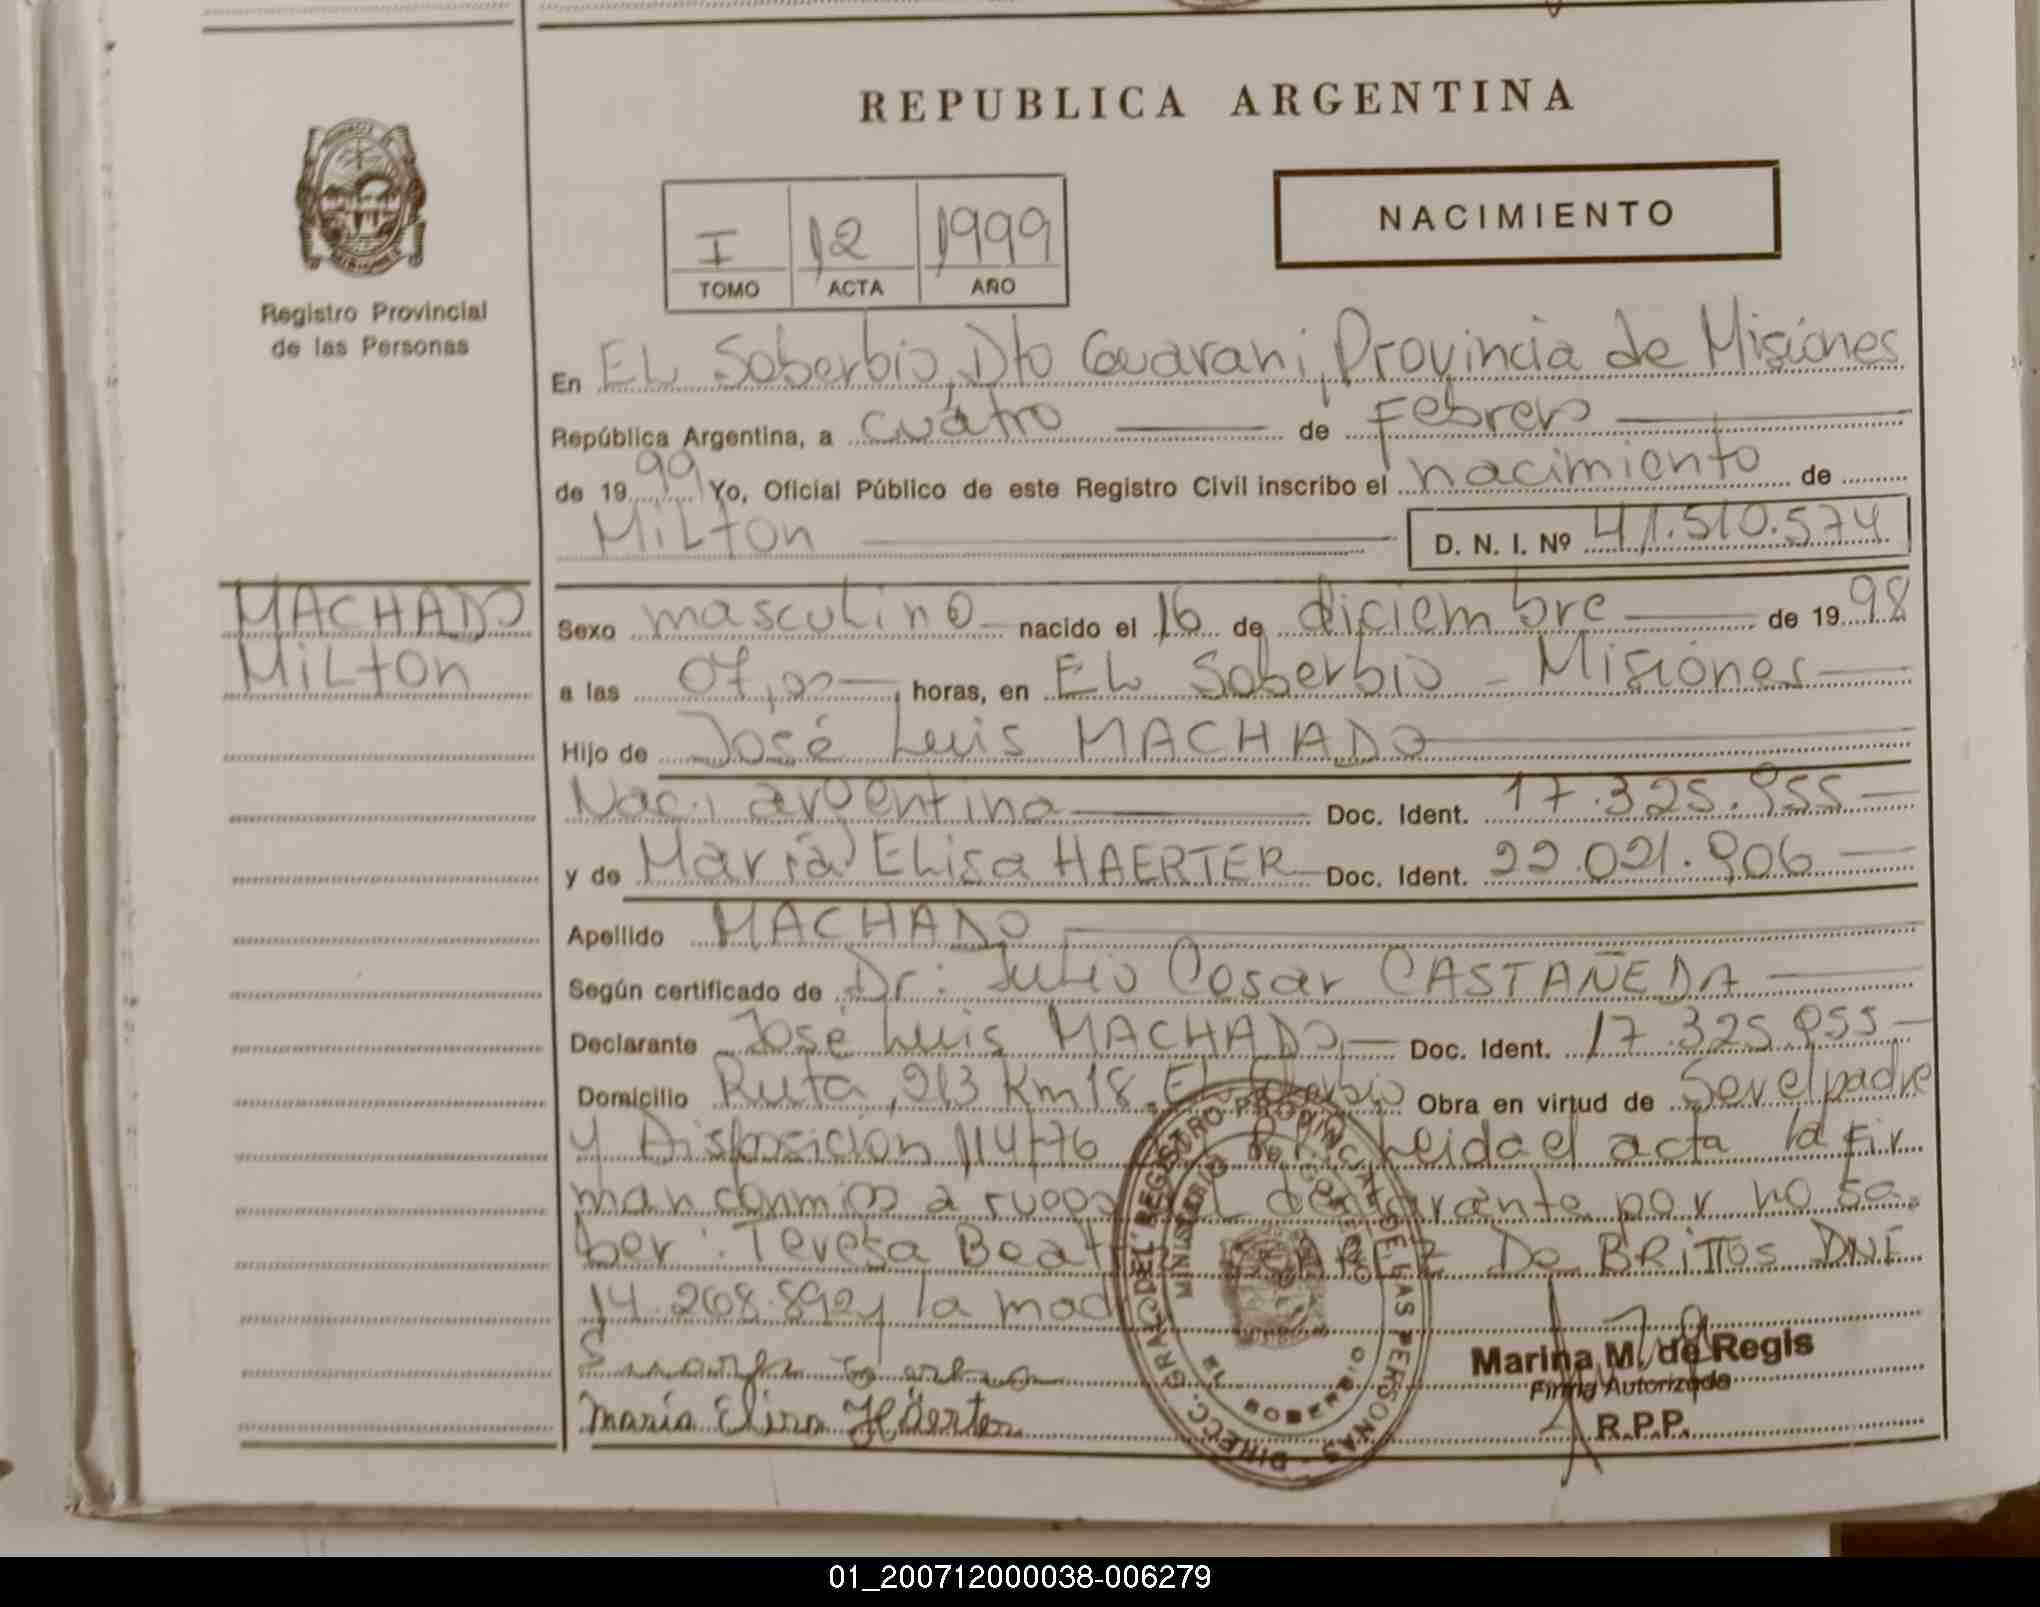 REPUBLICA ARGENTINA
NACIMIENTO
I 12 1999
TOMO ACTA AÑO
Registro Provincial
de las Personas
En EL Soberbio, Dto Guarani, Provincia de Misiones
República Argentina, a cuatro de Febrero
de 1999 Yo, Oficial Público de este Registro Civil inscribo el nacimiento de
Milton D. N. I. Nº 41.510.574
MACHADO
Milton
Sexo masculino nacido el 16 de diciembre de 1998
a las 07,00 horas, en EL Soberbio - Misiones
Hijo de José Luis MACHADO
Nac. argentina Doc. Ident. 17.325.955
y de María Elisa HAERTER Doc. Ident. 22.021.906
Apellido MACHADO
Según certificado de Dr: Julio Cesar CASTAÑEDA
Declarante José Luis MACHADO Doc. Ident. 17.325.955
Domicilio Ruta 213 Km 18. EL Obra en virtud de Ser el padre
y Disposición 114/76 Leida el acta la fir
man conmigo a ruego declarante por no sa
ber: Teresa DE BRITTOS DNI
14.268.892 y la
María Elisa Häerter
DIRECC. GRAL. DEL REGISTRO PROVINCIAL DE LAS PERSONAS
MINISTERIO DE
Marina M. de Regis
Firma Autorizada
R.P.P.
01_200712000038-006279